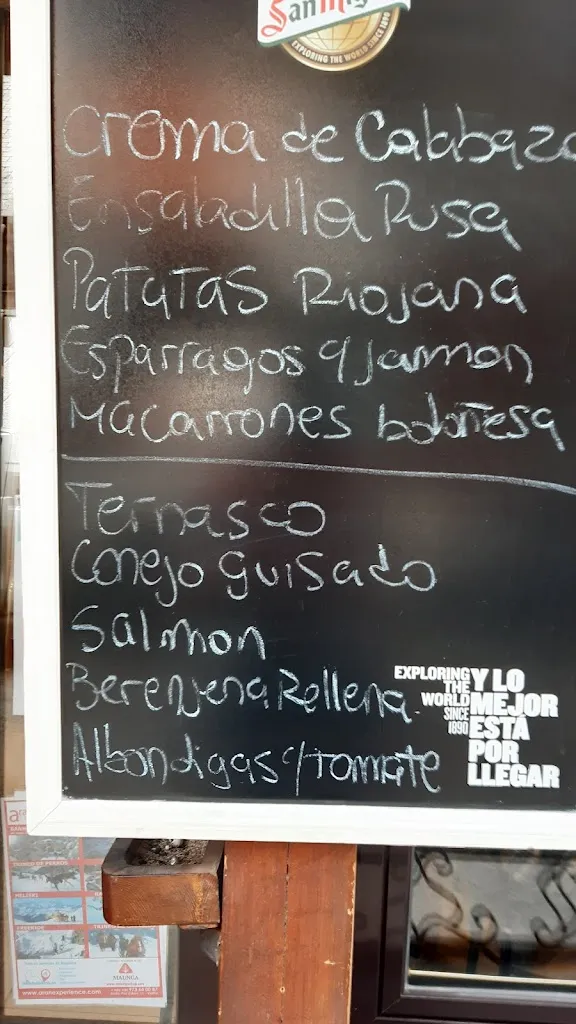 San Mig
EXPLORING THE WORLD SINCE 1890
Crema de Calabaza
Ensaladilla Rusa
PATATAS Riojana
Esparragos y Jammon
Macarrones boloñesa
Ternasco
Conejo guisado
Salmon
Berenjena Rellena
Albondigas c/tomate
EXPLORING THE WORLD SINCE 1890
Y LO MEJOR ESTÁ POR LLEGAR
MAUNGA